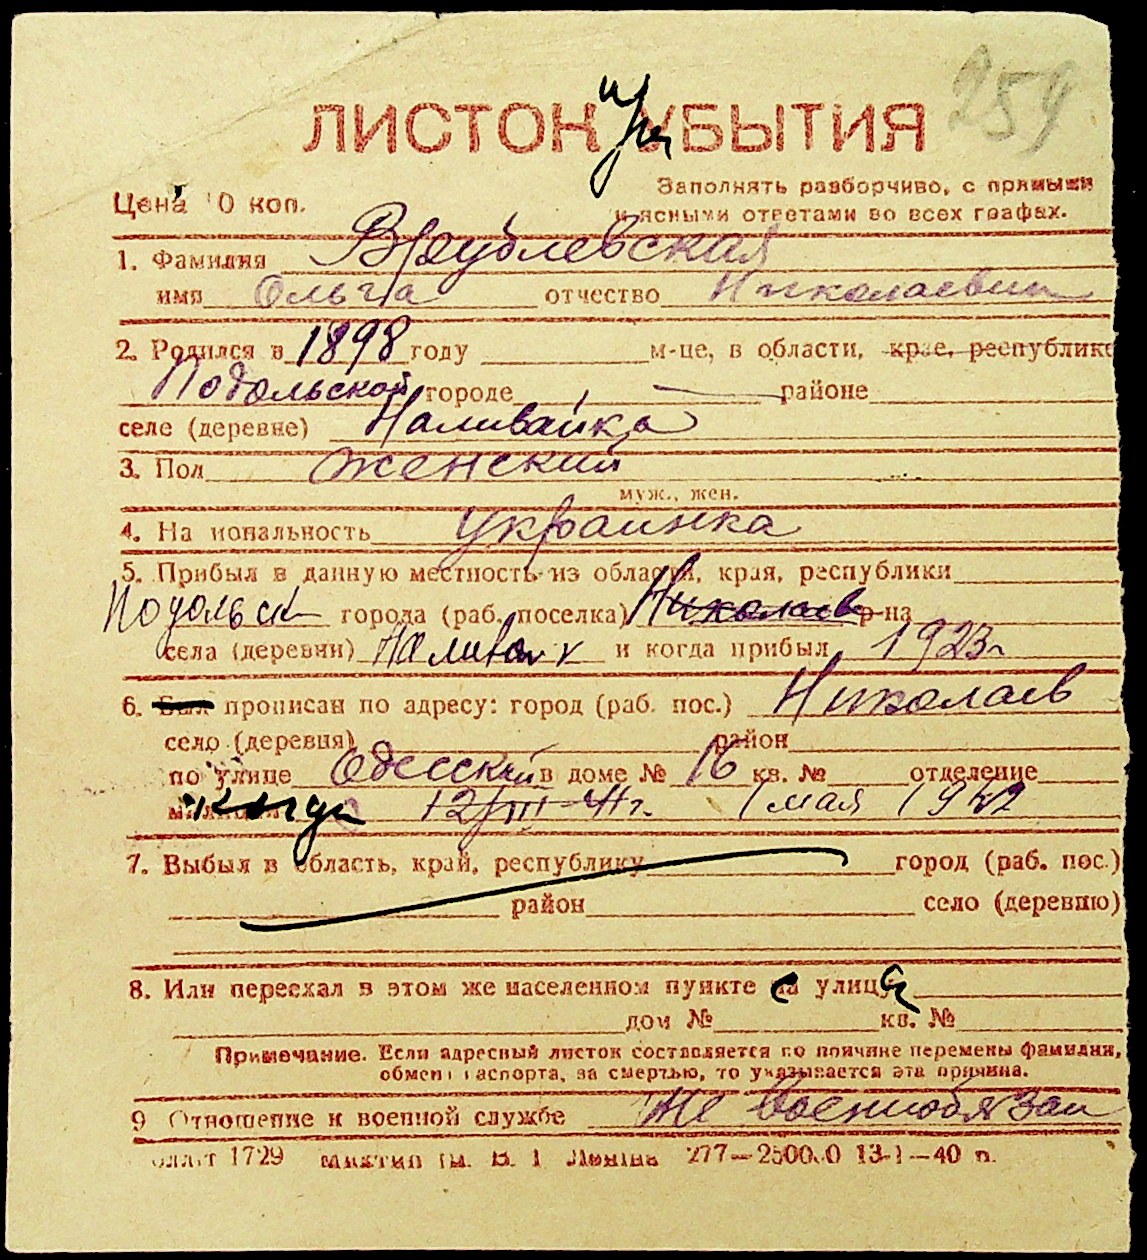 259
ЛИСТОН при УБЫТИЯ
Цена 10 коп.
Заполнять разборчиво, с прямыми
и ясными ответами во всех графах.
1. Фамилия Врублевская
имя Ольга отчество Николаевн
2. Родился в 1898 году м-це, в области, крае, республике
Подольской городе районе
селе (деревне) Наливайка
3. Пол женский
муж., жен.
4. Национальность украинка
5. Прибыл в данную местность из области, края, республики
Подольск города (раб. поселка) Николаев р-на
села (деревни) Наливайк и когда прибыл 1923г
6. Был прописан по адресу: город (раб. пос.) Николаев
село (деревня) район
по улице Одесский в доме № 16 кв. № отделение
милиции когда 12/III-41г. 1 мая 1942
7. Выбыл в область, край, республику город (раб. пос.)
район село (деревню)
8. Или переехал в этом же населенном пункте с улицы
дом № кв. №
Примечание. Если адресный листок составляется по причине перемены фамилии,
обмена паспорта, за смертью, то указывается эта причина.
9 Отношение к военной службе Не военнообязан
1729 им. В. І. Леніна 277—25000 13-1—40 р.